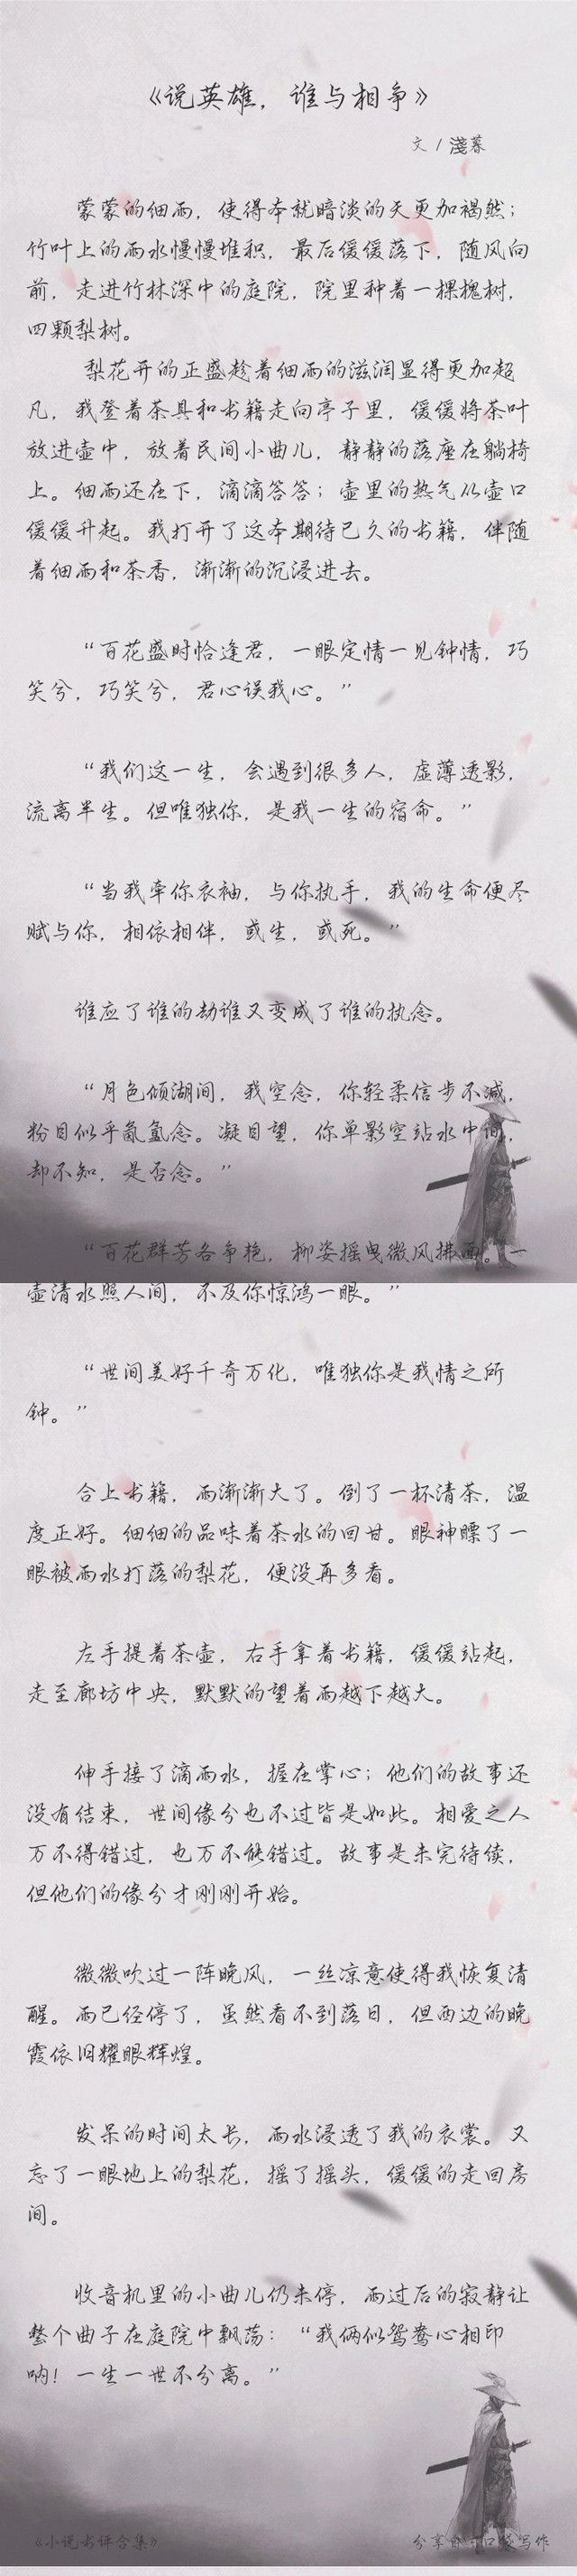 《说英雄，谁与相争》
文 / 淺暮
蒙蒙的细雨，使得本就暗淡的天更加褐然；
竹叶上的雨水慢慢堆积，最后缓缓落下，随风向
前，走进竹林深中的庭院，院里种着一棵槐树，
四颗梨树。
梨花开的正盛趁着细雨的滋润显得更加超
凡，我登着茶具和书籍走向亭子里，缓缓将茶叶
放进壶中，放着民间小曲儿，静静的落座在躺椅
上。细雨还在下，滴滴答答；壶里的热气从壶口
缓缓升起。我打开了这本期待已久的书籍，伴随
着细雨和茶香，渐渐的沉浸进去。
“百花盛时恰逢君，一眼定情一见钟情，巧
笑兮，巧笑兮，君心误我心。”
“我们这一生，会遇到很多人，虚薄透影，
流离半生。但唯独你，是我一生的宿命。”
“当我牵你衣袖，与你执手，我的生命便尽
赋与你，相依相伴，或生，或死。”
谁应了谁的劫谁又变成了谁的执念。
“月色倾湖间，我空念，你轻柔信步不减，
粉目似乎氤氲念。凝目望，你单影空站水中间，
却不知，是否念。”
“百花群芳各争艳，柳姿摇曳微风拂面。一
壶清水照人间，不及你惊鸿一眼。”
“世间美好千奇万化，唯独你是我情之所
钟。”
合上书籍，雨渐渐大了。倒了一杯清茶，温
度正好。细细的品味着茶水的回甘。眼神瞟了一
眼被雨水打落的梨花，便没再多看。
左手提着茶壶，右手拿着书籍，缓缓站起，
走至廊坊中央，默默的望着雨越下越大。
伸手接了滴雨水，握在掌心；他们的故事还
没有结束，世间缘分也不过皆是如此。相爱之人
万不得错过，也万不能错过。故事是未完待续，
但他们的缘分才刚刚开始。
微微吹过一阵晚风，一丝凉意使得我恢复清
醒。雨已经停了，虽然看不到落日，但西边的晚
霞依旧耀眼辉煌。
发呆的时间太长，雨水浸透了我的衣裳。又
忘了一眼地上的梨花，摇了摇头，缓缓的走回房
间。
收音机里的小曲儿仍未停，雨过后的寂静让
整个曲子在庭院中飘荡：“我俩似鸳鸯心相印
呐！一生一世不分离。”
《小说书评合集》
分享自 口袋写作